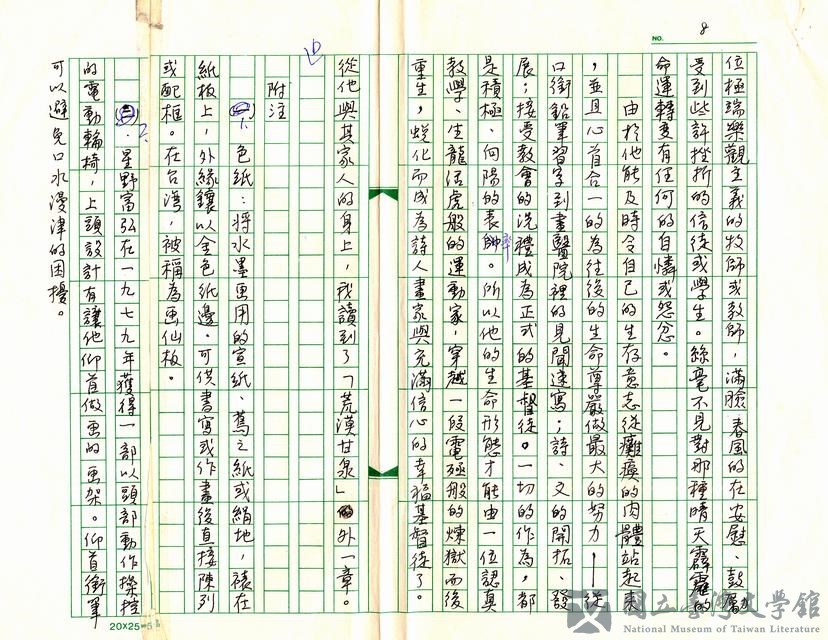 NO. 8
位極端樂觀主義的牧師或教師,滿臉春風的在安慰、鼓勵
受到些許挫折的信徒或學生。絲毫不見對那種晴天霹靂的
命運轉變有任何的自憐或怨忿。
由於他能及時令自己的生存意志從癱瘓的肉體站起來
,並且心首合一的為往後的生命尊嚴做最大的努力——從
口銜鉛筆習字到畫醫院裡的見聞速寫;詩、文的開拓、發
展;接受教會的洗禮成為正式的基督徒。一切的作為,都
是積極、向陽的表率。所以他的生命形態才能由一位認真
教學、生龍活虎般的運動家,穿越一段電殛般的煉獄而後
重生,蛻化而成為詩人畫家與充滿信心的幸福基督徒了。
從他與其家人的身上,我讀到了「荒漠甘泉」的外一章。
附注
㈠、色紙:將水墨畫用的宣紙、蔦之紙或絹地,裱在
紙板上,外緣鑲以金色紙邊。可供書寫或作畫後直接陳列
或配框。在台灣,被稱為畫仙板。
㈡、星野富弘在一九七九年獲得一部以頭部動作操控
的電動輪椅,上頭設計有讓他仰首做畫的畫架。仰首銜筆
可以避免口水漫津的困擾。
20X25=5
國立臺灣文學館
National Museum of Taiwan Literature